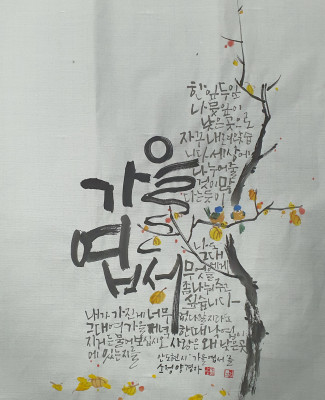 한잎두잎
나뭇잎이
낮은곳으로
자꾸내려앉습
니다 세상에
나누어줄
것이 많
다는듯이
가을
엽서
나도
그대에게
무엇을
좀나눠주고
싶습니다
내가 가진게 너무 없다할지라도
그대여 가을저녁 한때 낙엽이
지거든 물어보십시오 사랑은 왜 낮은곳
에 있는지를 안도현시 가을엽서를